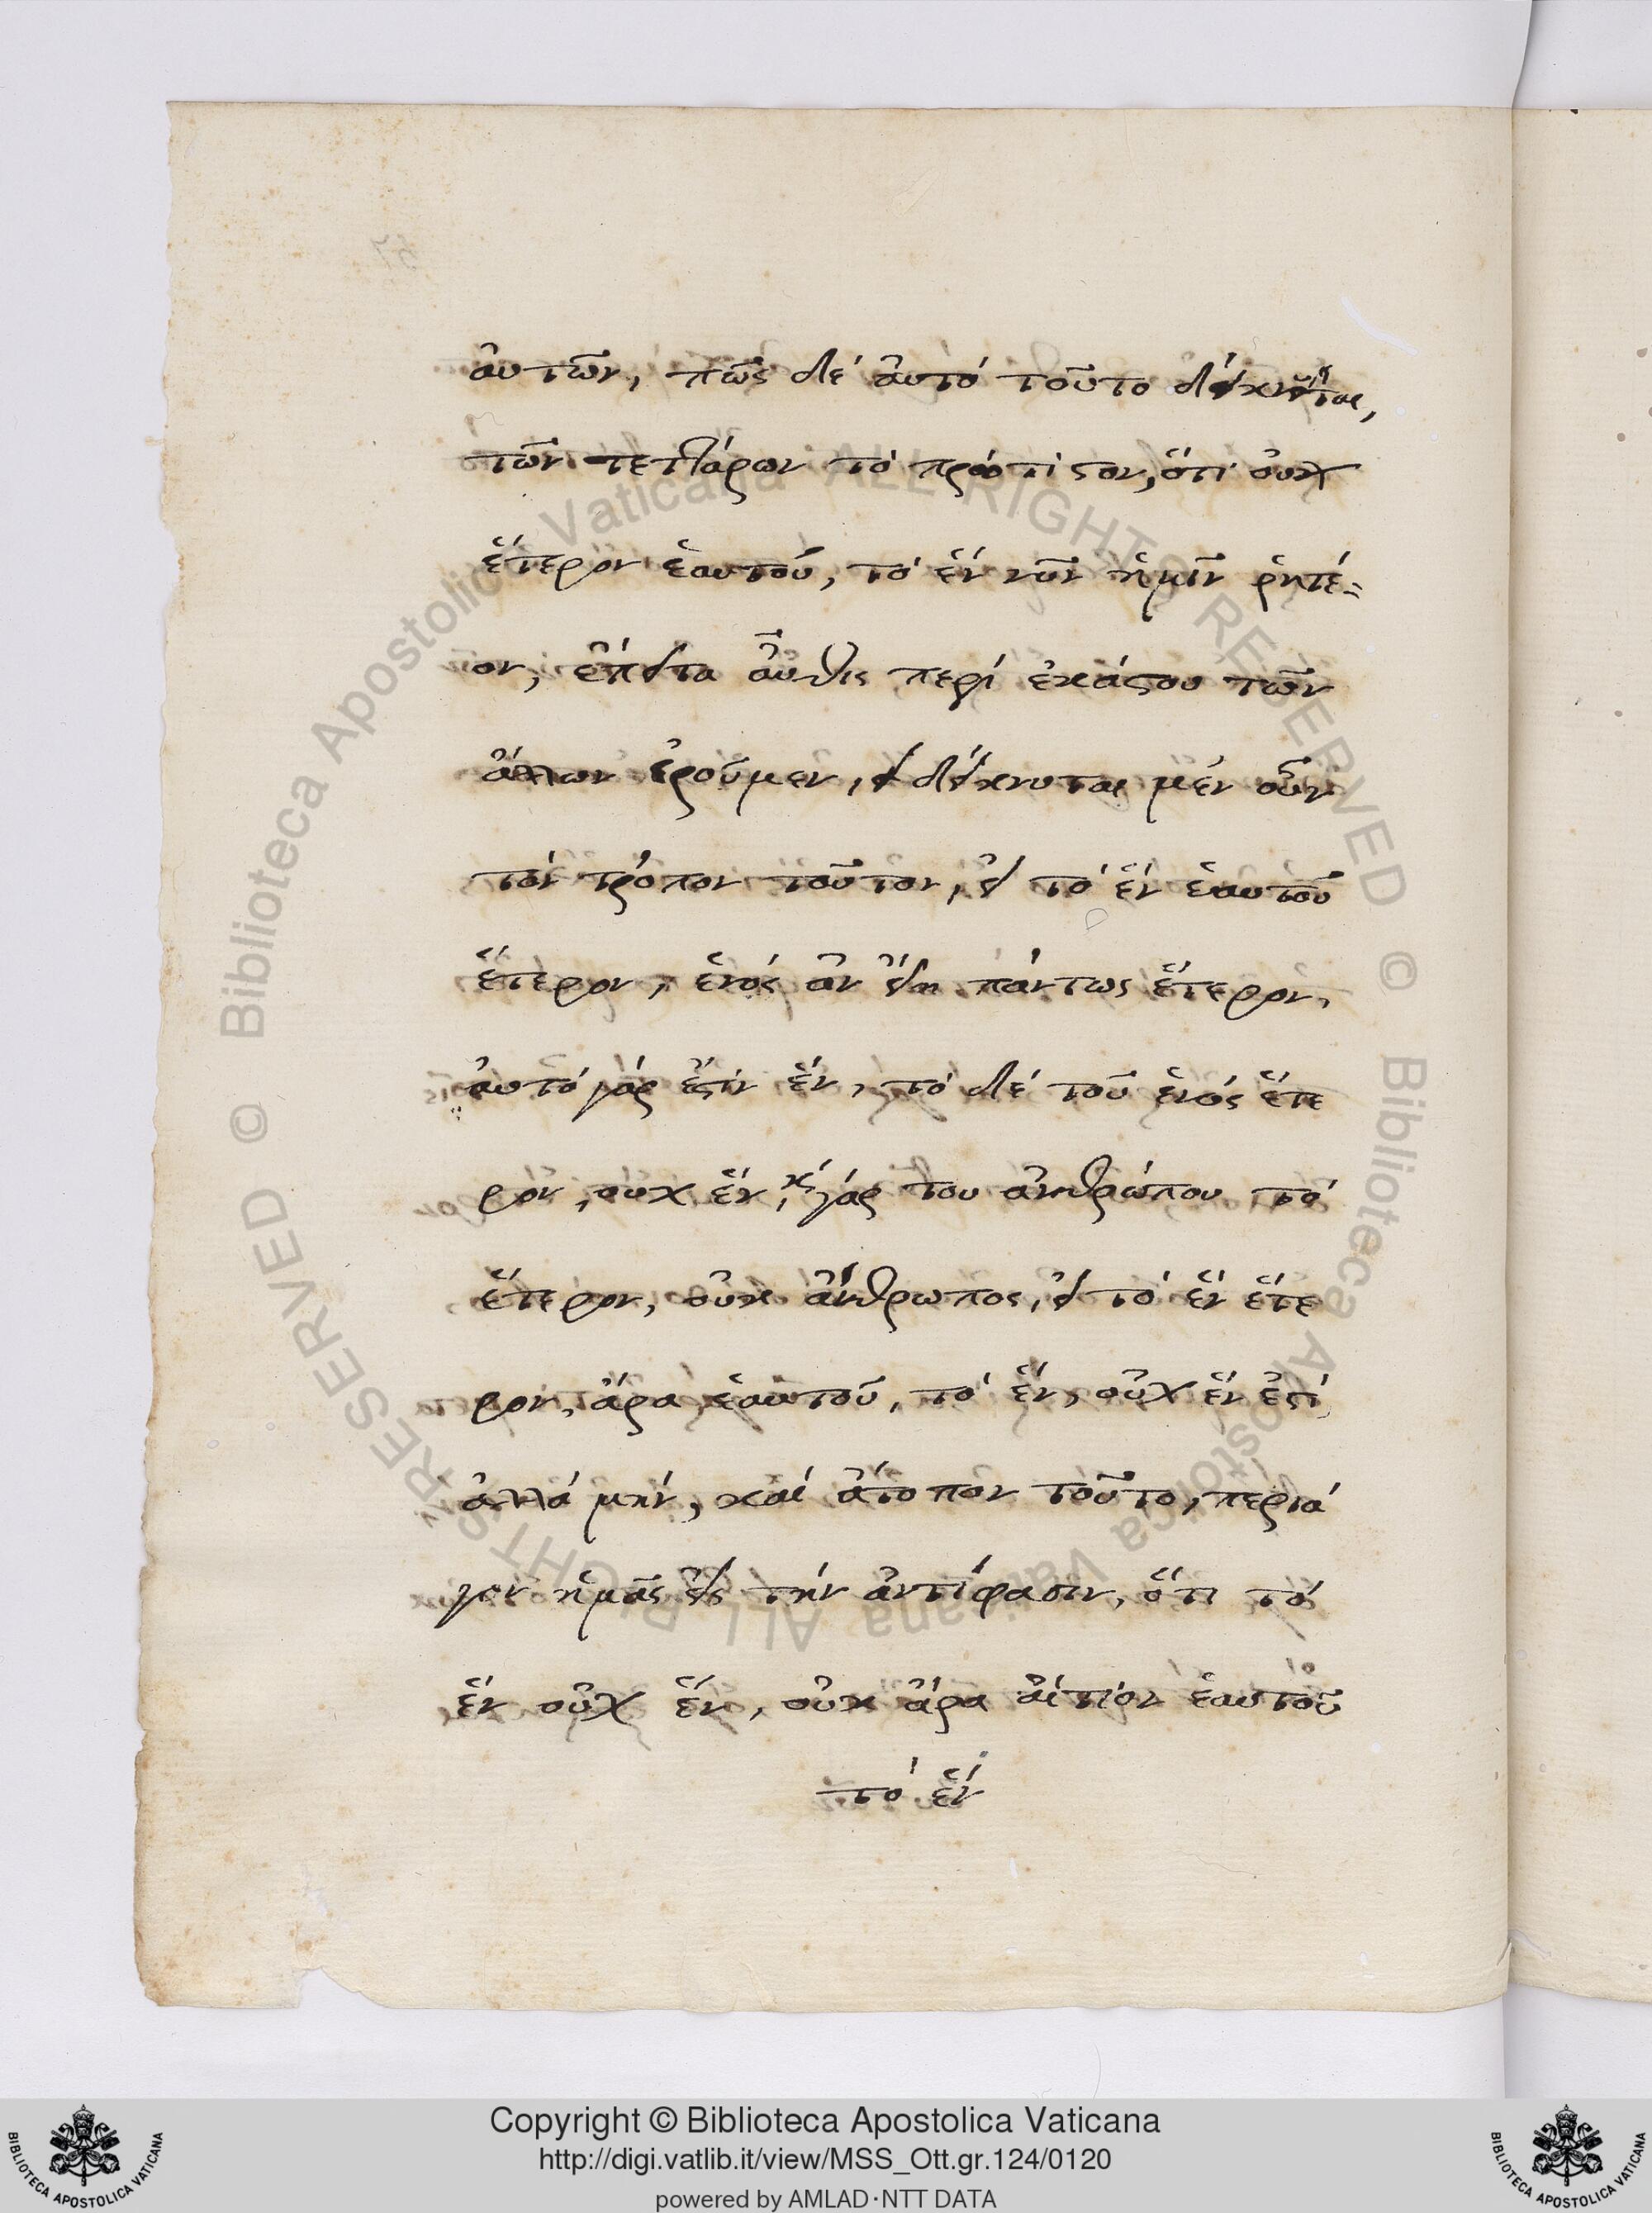 αὐτῶν, πῶς δέ αὐτό τοῦτο δείκνυται,
τῶν τεττάρων τό πρώτιστον, ὅτι οὐχ
ἕτερον ἑαυτοῦ, τό ἕν νῦν ἡμῖν ῥητέ-
ον, ἔπειτα αὖθις περί ἑκάστου τῶν
ἄλλων ἐροῦμεν, δείκνυται μέν οὖν
τόν τρόπον τοῦτον, εἰ τό ἕν ἑαυτοῦ
ἕτερον, ἑνός ἂν εἴη πάντως ἕτερον,
αὐτό γάρ ἐστίν ἕν, τό δέ τοῦ ἑνός ἕτε
ρον, οὐχ ἕν, κ γάρ του ἀνθρώπου τό
ἕτερον, οὐκ ἄνθρωπος, εἰ τό ἕν ἕτε
ρον, ἄρα ἑαυτοῦ, τό ἕν, οὐχ ἕν ἐστί
ἀλλά μήν, καί ἄτοπον τοῦτο, περιά
γον ἡμᾶς εἰς τήν ἀντίφασιν, ὅτι τό
ἕν οὐχ ἕν, οὐκ ἄρα αἴτιον ἑαυτοῦ
τό ἕν
Copyright © Biblioteca Apostolica Vaticana
http://digi.vatlib.it/view/MSS_Ott.gr.124/0120
powered by AMLAD·NTT DATA
BIBLIOTECA APOSTOLICA VATICANA
BIBLIOTECA APOSTOLICA VATICANA
© Biblioteca Apostolica Vaticana ALL RIGHTS RESERVED
© Biblioteca Apostolica Vaticana ALL RIGHTS RESERVED